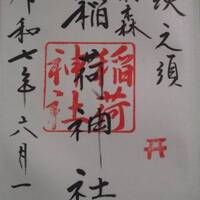 之須
森
稲荷神社
稲荷
神社
令和七年六月一